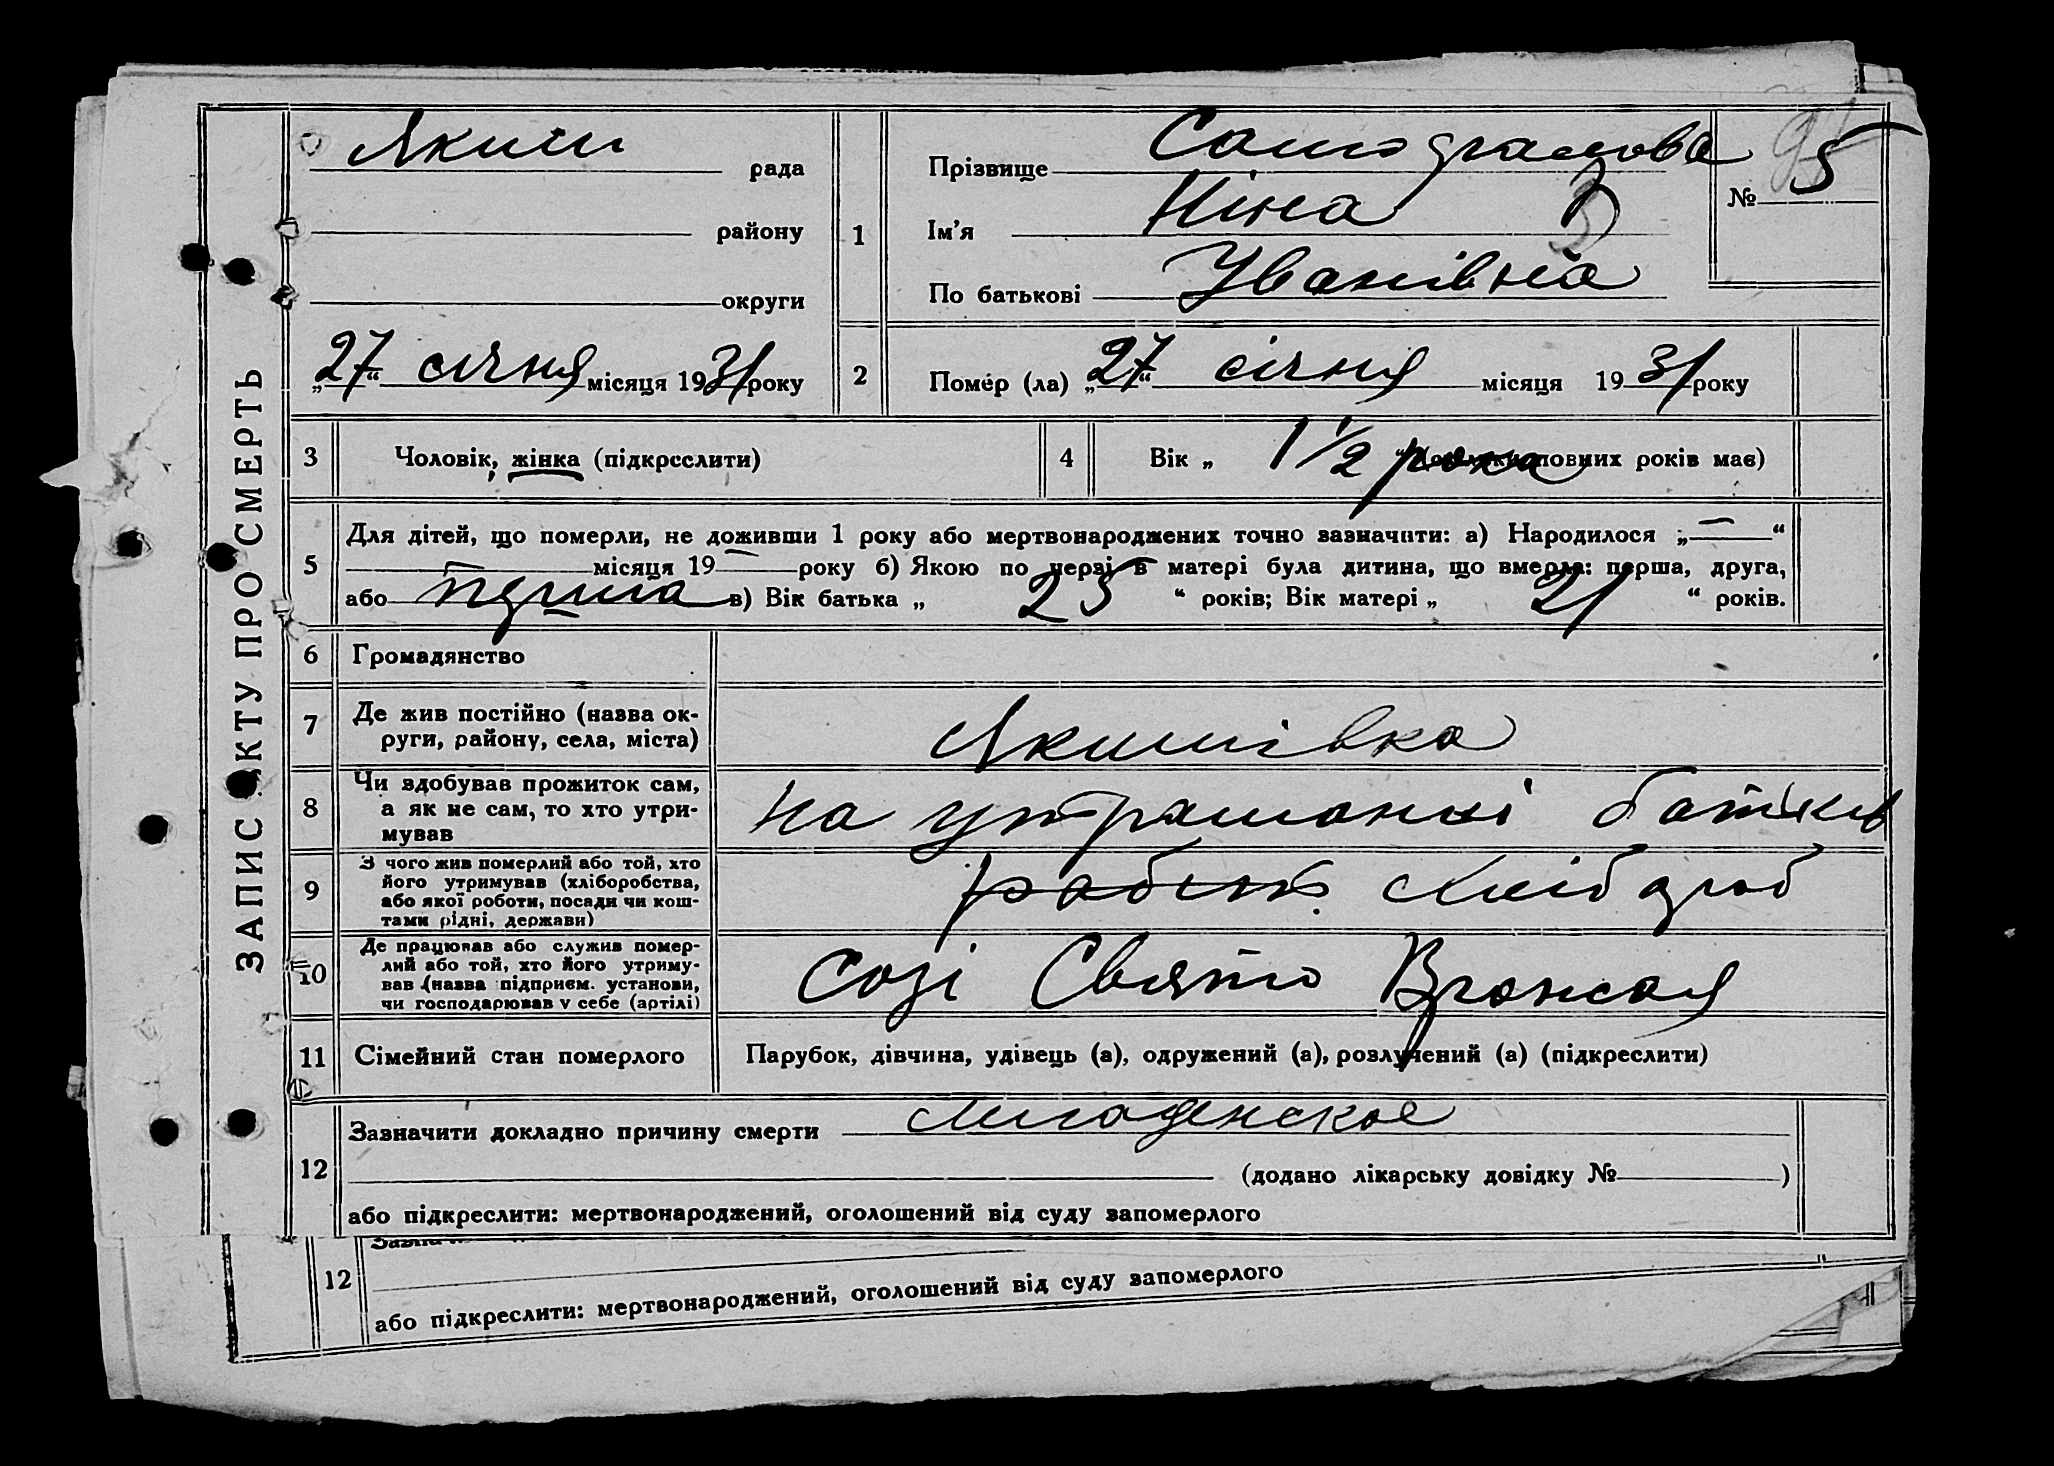 ЗАПИС АКТУ ПРО СМЕРТЬ
Яким рада
району
округи
„27“ січня місяця 1931 року
1
Прізвище
Ім'я Ніна
По батькові Уванівна
№ 5
2 Помер (ла) „27“ січня місяця 1931 року
3 Чоловік, жінка (підкреслити)
4 Вік „ 1 1/2 рока повних років має)
5 Для дітей, що померли, не доживши 1 року або мертвонароджених точно зазначити: а) Народилося „—“
місяця 19 — року б) Якою по черзі в матері була дитина, що вмерла: перша, друга,
або перша в) Вік батька „ 25 “ років; Вік матері „ 21 “ років.
6 Громадянство
7 Де жив постійно (назва округи, району, села, міста)
Якимівка
8 Чи здобував прожиток сам,
а як не сам, то хто утримував
на утриманні батьків
9 З чого жив померлий або той, хто
його утримував (хліборобства,
або якої роботи, посади чи коштами рідні, держави)
хлібороб
10 Де працював або служив померлий або той, хто його утримував (назва підприєм. установи,
чи господарював у себе (артілі)
созі Свято
11 Сімейний стан померлого
Парубок, дівчина, удівець (а), одружений (а), розлучений (а) (підкреслити)
12 Зазначити докладно причину смерти
(додано лікарську довідку № )
або підкреслити: мертвонароджений, оголошений від суду запомерлого
12
або підкреслити: мертвонароджений, оголошений від суду запомерлого